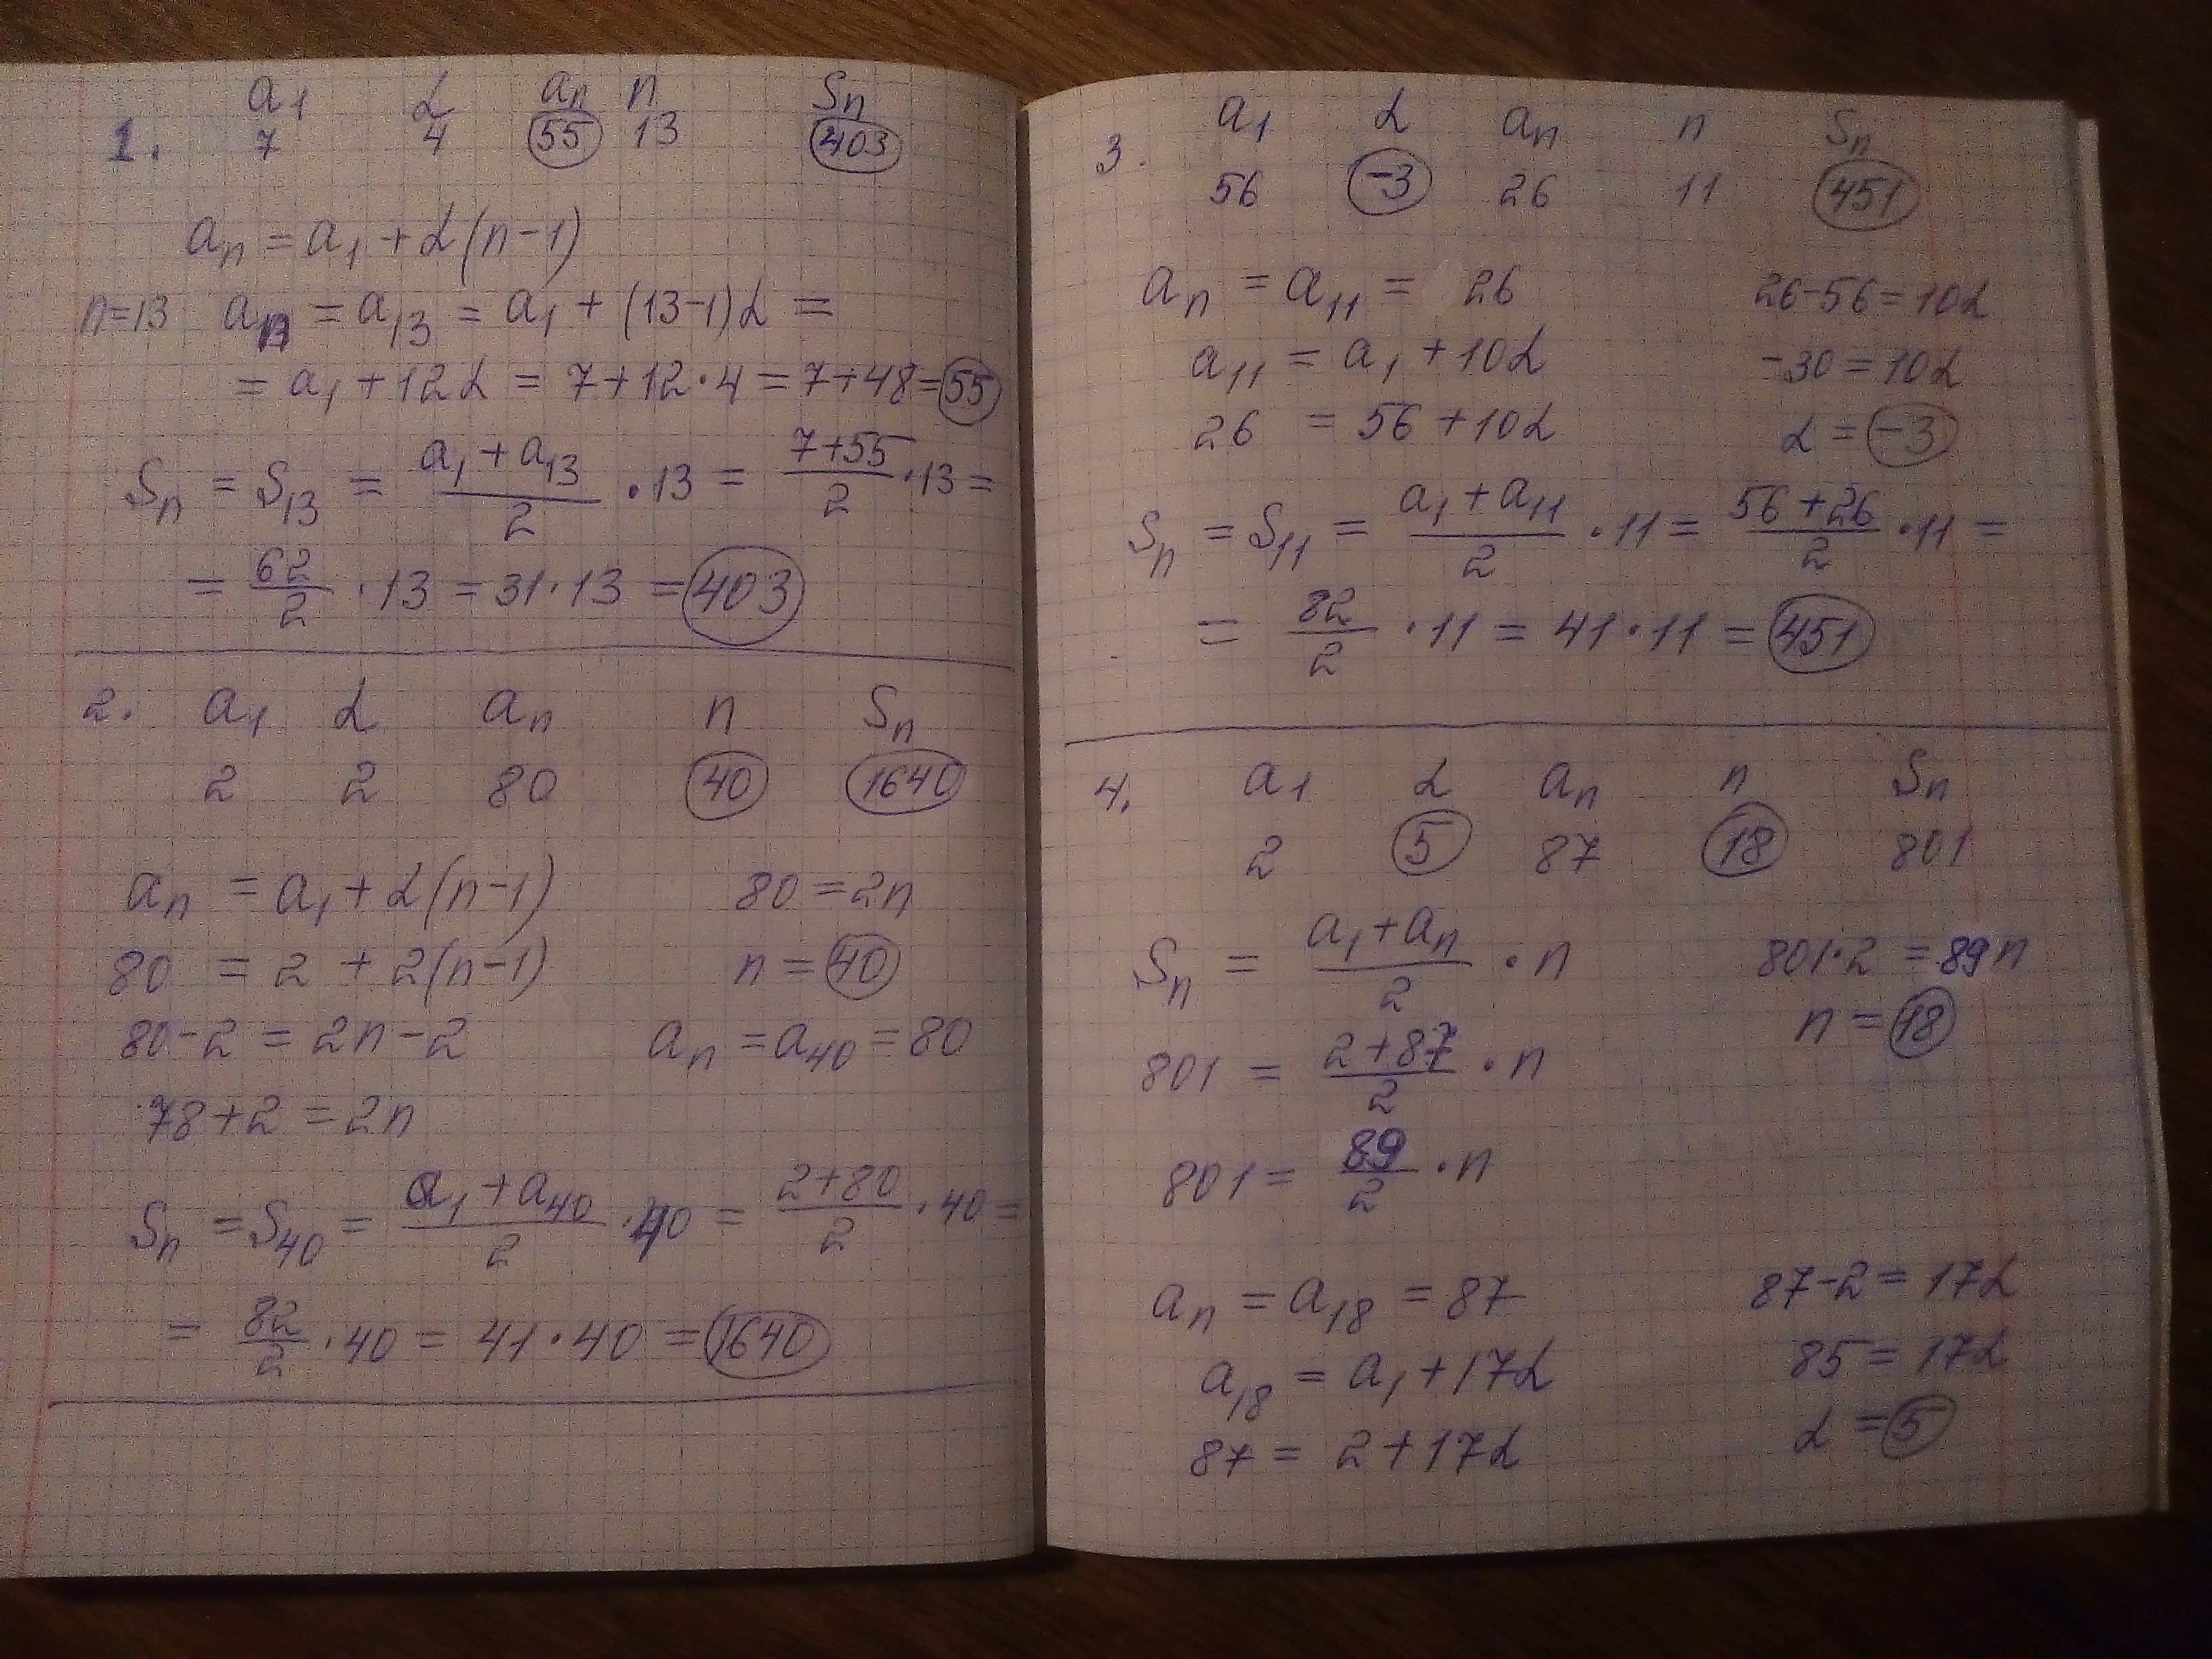 1. a₁ d aₙ n Sₙ
7 4 55 13 403
aₙ = a₁ + d(n-1)
n=13 a₁₃ = a₁₃ = a₁ + (13-1)d =
= a₁ + 12d = 7+12·4 = 7+48=55
Sₙ = S₁₃ = (a₁ + a₁₃)/2 · 13 = (7+55)/2 · 13 =
= 62/2 · 13 = 31·13 = 403
2. a₁ d aₙ n Sₙ
2 2 80 40 1640
aₙ = a₁ + d(n-1) 80 = 2n
80 = 2 + 2(n-1) n = 40
80-2 = 2n-2 aₙ = a₄₀ = 80
78+2 = 2n
Sₙ = S₄₀ = (a₁ + a₄₀)/2 · 40 = (2+80)/2 · 40 =
= 82/2 · 40 = 41·40 = 1640
3. a₁ d aₙ n Sₙ
56 -3 26 11 451
aₙ = a₁₁ = 26 26-56=10d
a₁₁ = a₁ + 10d -30=10d
26 = 56 + 10d d = -3
Sₙ = S₁₁ = (a₁ + a₁₁)/2 · 11 = (56+26)/2 · 11 =
= 82/2 · 11 = 41·11 = 451
4. a₁ d aₙ n Sₙ
2 5 87 18 801
Sₙ = (a₁ + aₙ)/2 · n 801·2 = 89n
801 = (2+87)/2 · n n = 18
801 = 89/2 · n
aₙ = a₁₈ = 87 87-2 = 17d
a₁₈ = a₁ + 17d 85 = 17d
87 = 2 + 17d d = 5